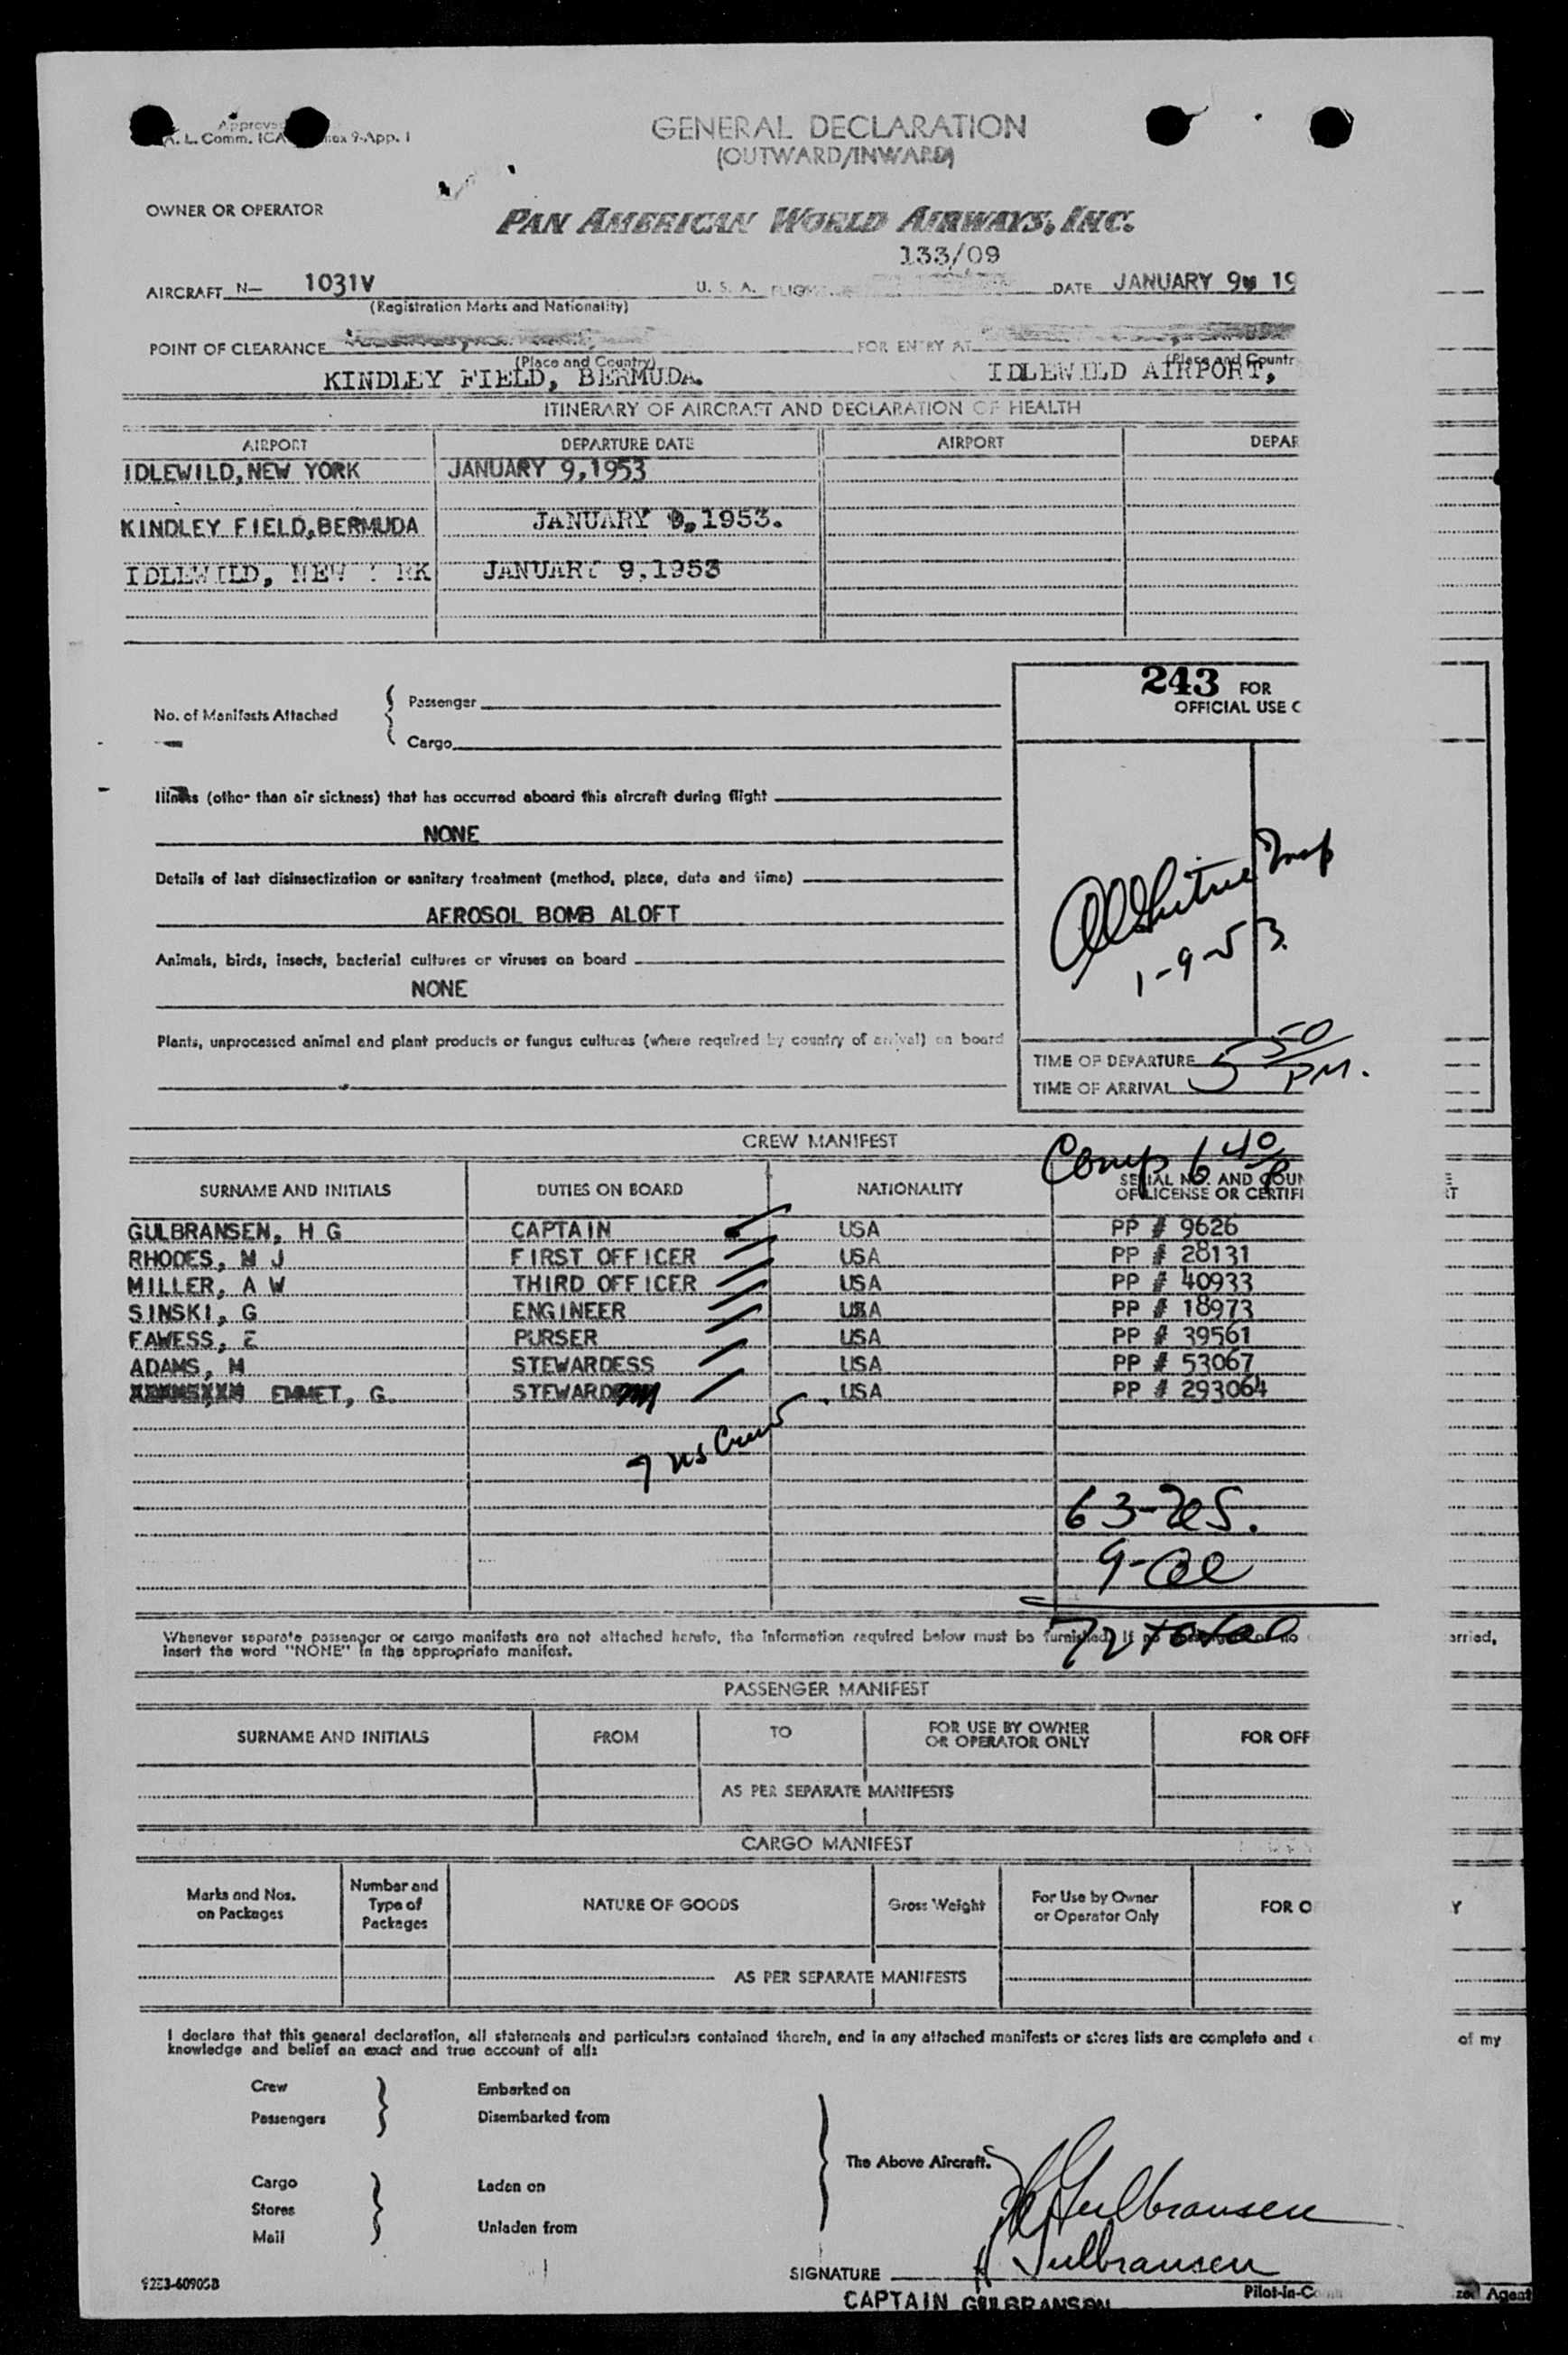 Approve
A. L. Comm. ICA nex 9-App. 1
GENERAL DECLARATION
(OUTWARD/INWARD)
OWNER OR OPERATOR
PAN AMERICAN WORLD AIRWAYS, INC.
133/09
AIRCRAFT N— 1031V U. S. A. DATE JANUARY 9 19
(Registration Marks and Nationality)
POINT OF CLEARANCE FOR ENTRY AT
(Place and Country) (Place and Countr
KINDLEY FIELD, BERMUDA. IDLEWILD AIRPORT,
ITINERARY OF AIRCRAFT AND DECLARATION OF HEALTH
AIRPORT DEPARTURE DATE AIRPORT DEPAR
IDLEWILD, NEW YORK JANUARY 9, 1953
KINDLEY FIELD, BERMUDA JANUARY 9, 1953.
IDLEWILD, NEW RK JANUARY 9, 1953
243 FOR
OFFICIAL USE O
No. of Manifests Attached { Passenger
{ Cargo
Illness (other than air sickness) that has occurred aboard this aircraft during flight
NONE
Details of last disinsectization or sanitary treatment (method, place, date and time)
AEROSOL BOMB ALOFT
1-9-53.
Animals, birds, insects, bacterial cultures or viruses on board
NONE
Plants, unprocessed animal and plant products or fungus cultures (where required by country of arrival) on board
TIME OF DEPARTURE
TIME OF ARRIVAL 5 50 PM.
CREW MANIFEST
Comp 6 40 P
SURNAME AND INITIALS DUTIES ON BOARD NATIONALITY SERIAL NO. AND COUN
OF LICENSE OR CERTIFI RT
GULBRANSEN, H G CAPTAIN USA PP # 9626
RHODES, M J FIRST OFFICER USA PP # 28131
MILLER, A W THIRD OFFICER USA PP # 40933
SINSKI, G ENGINEER USA PP # 18973
FAWESS, E PURSER USA PP # 39561
ADAMS, M STEWARDESS USA PP # 53067
EMMET, G. STEWARD USA PP # 293064
7 US Crew
63-US.
9-Al
72 total
Whenever separate passenger or cargo manifests are not attached hereto, the information required below must be furnished. If no no arried,
insert the word "NONE" in the appropriate manifest.
PASSENGER MANIFEST
SURNAME AND INITIALS FROM TO FOR USE BY OWNER
OR OPERATOR ONLY FOR OFF
AS PER SEPARATE MANIFESTS
CARGO MANIFEST
Marks and Nos.
on Packages Number and
Type of
Packages NATURE OF GOODS Gross Weight For Use by Owner
or Operator Only FOR O Y
AS PER SEPARATE MANIFESTS
I declare that this general declaration, all statements and particulars contained therein, and in any attached manifests or stores lists are complete and of my
knowledge and belief an exact and true account of all:
Crew Embarked on
Passengers Disembarked from
The Above Aircraft.
Cargo Laden on
Stores
Mail Unladen from
H Gulbransen
H Gulbransen
SIGNATURE
Pilot-in-Co zed Agent
CAPTAIN GULBRANSEN